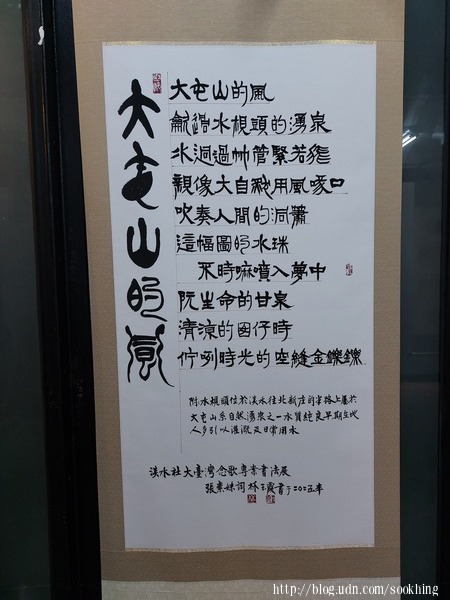 大屯山的風
大屯山的風
歕過水梘頭的湧泉
水迵過竹管緊若
親像大自然用風喙口
吹奏人間的洞簫
這幅圖的水珠
不時嘛噴入夢中
阮生命的甘泉
清涼的囡仔時
佇咧時光的空縫金鑠鑠
附:水梘頭位於淡水往北新庄的半路上屬於
大屯山系自然湧泉之一水質純良早期在地
人多引以灌溉及日常用水
淡水社大臺灣念歌專業書法展
張素姝詞 林玉霞書于二〇二五年
http://blog.udn.com/sookhing